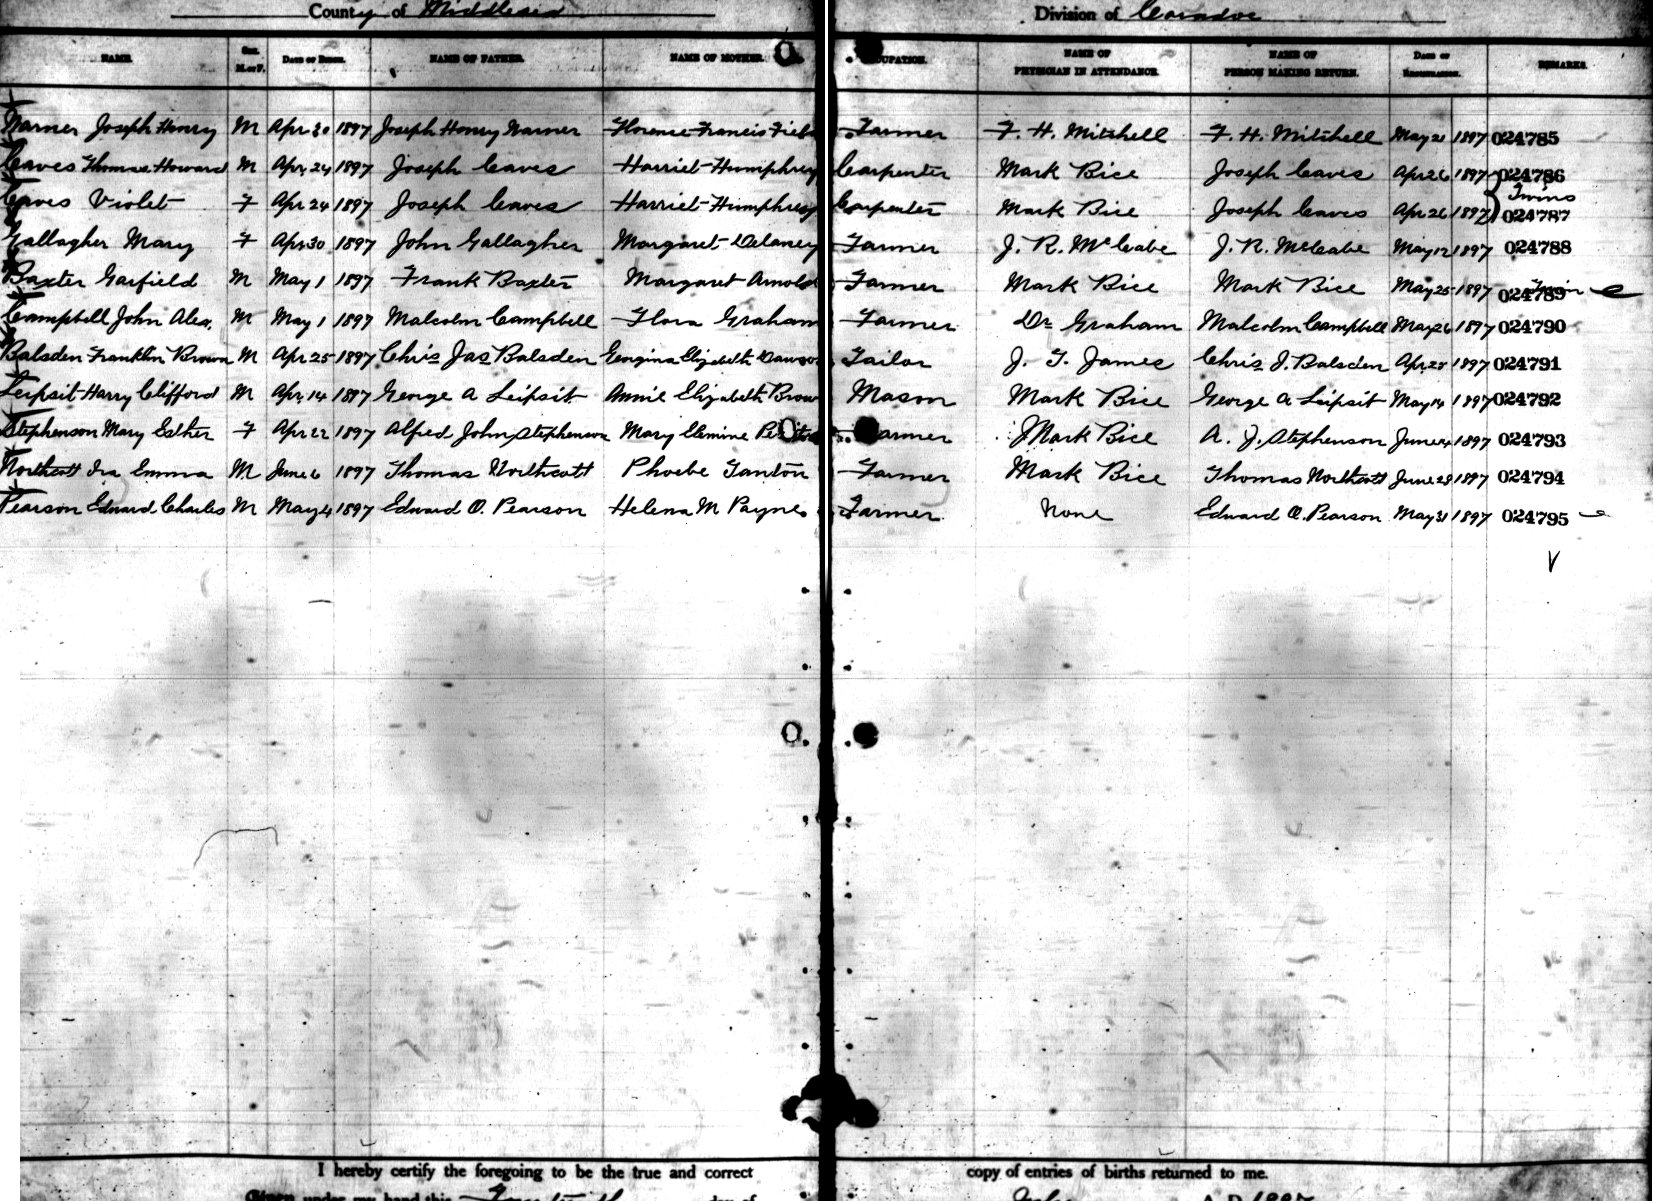 County of Middlesex Division of Caradoc
NAME. SEX. M. or F. DATE OF BIRTH. NAME OF FATHER. NAME OF MOTHER. OCCUPATION. NAME OF PHYSICIAN IN ATTENDANCE. NAME OF PERSON MAKING RETURN. DATE OF REGISTRATION. REMARKS.
Warner Joseph Henry M Apr 20 1897 Joseph Henry Warner Florence Francis Farmer F. H. Mitchell F. H. Mitchell May 21 1897 024785
Caves Thomas Howard M Apr 24 1897 Joseph Caves Harriet Humphrey Carpenter Mark Bice Joseph Caves Apr 26 1897 024786
Twins
Caves Violet F Apr 24 1897 Joseph Caves Harriet Humphrey Carpenter Mark Bice Joseph Caves Apr 26 1897 024787
Gallagher Mary F Apr 30 1897 John Gallagher Margaret Delaney Farmer J. R. McCabe J. R. McCabe May 12 1897 024788
Baxter Garfield M May 1 1897 Frank Baxter Margaret Arnold Farmer Mark Bice Mark Bice May 25 1897 024789
Campbell John Alex. M May 1 1897 Malcolm Campbell Flora Graham Farmer Dr Graham Malcolm Campbell May 26 1897 024790
Balsden Franklin Brown M Apr 25 1897 Chris Jas Balsden Georgina Elizabeth Tailor J. T. James Chris J. Balsden Apr 28 1897 024791
Leipsit Harry Clifford M Apr 14 1897 George A Leipsit Annie Elizabeth Brown Mason Mark Bice George A Leipsit May 14 1897 024792
Stephenson Mary Esther F Apr 22 1897 Alfred John Stephenson Mary Farmer Mark Bice A. J. Stephenson June 4 1897 024793
Northcott Ira Emma M June 6 1897 Thomas Northcott Phoebe Tanton Farmer Mark Bice Thomas Northcott June 29 1897 024794
Pearson Edward Charles M May 4 1897 Edward O. Pearson Helena M Payne Farmer None Edward O. Pearson May 31 1897 024795
I hereby certify the foregoing to be the true and correct copy of entries of births returned to me.
Given under my hand this day of A. D. 1897